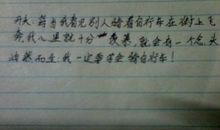 天：每当我看见别人骑着自行车在街上飞
奔我心里就十分羡慕，就会有一个念头
油然而生：我一定要学会骑自行车！